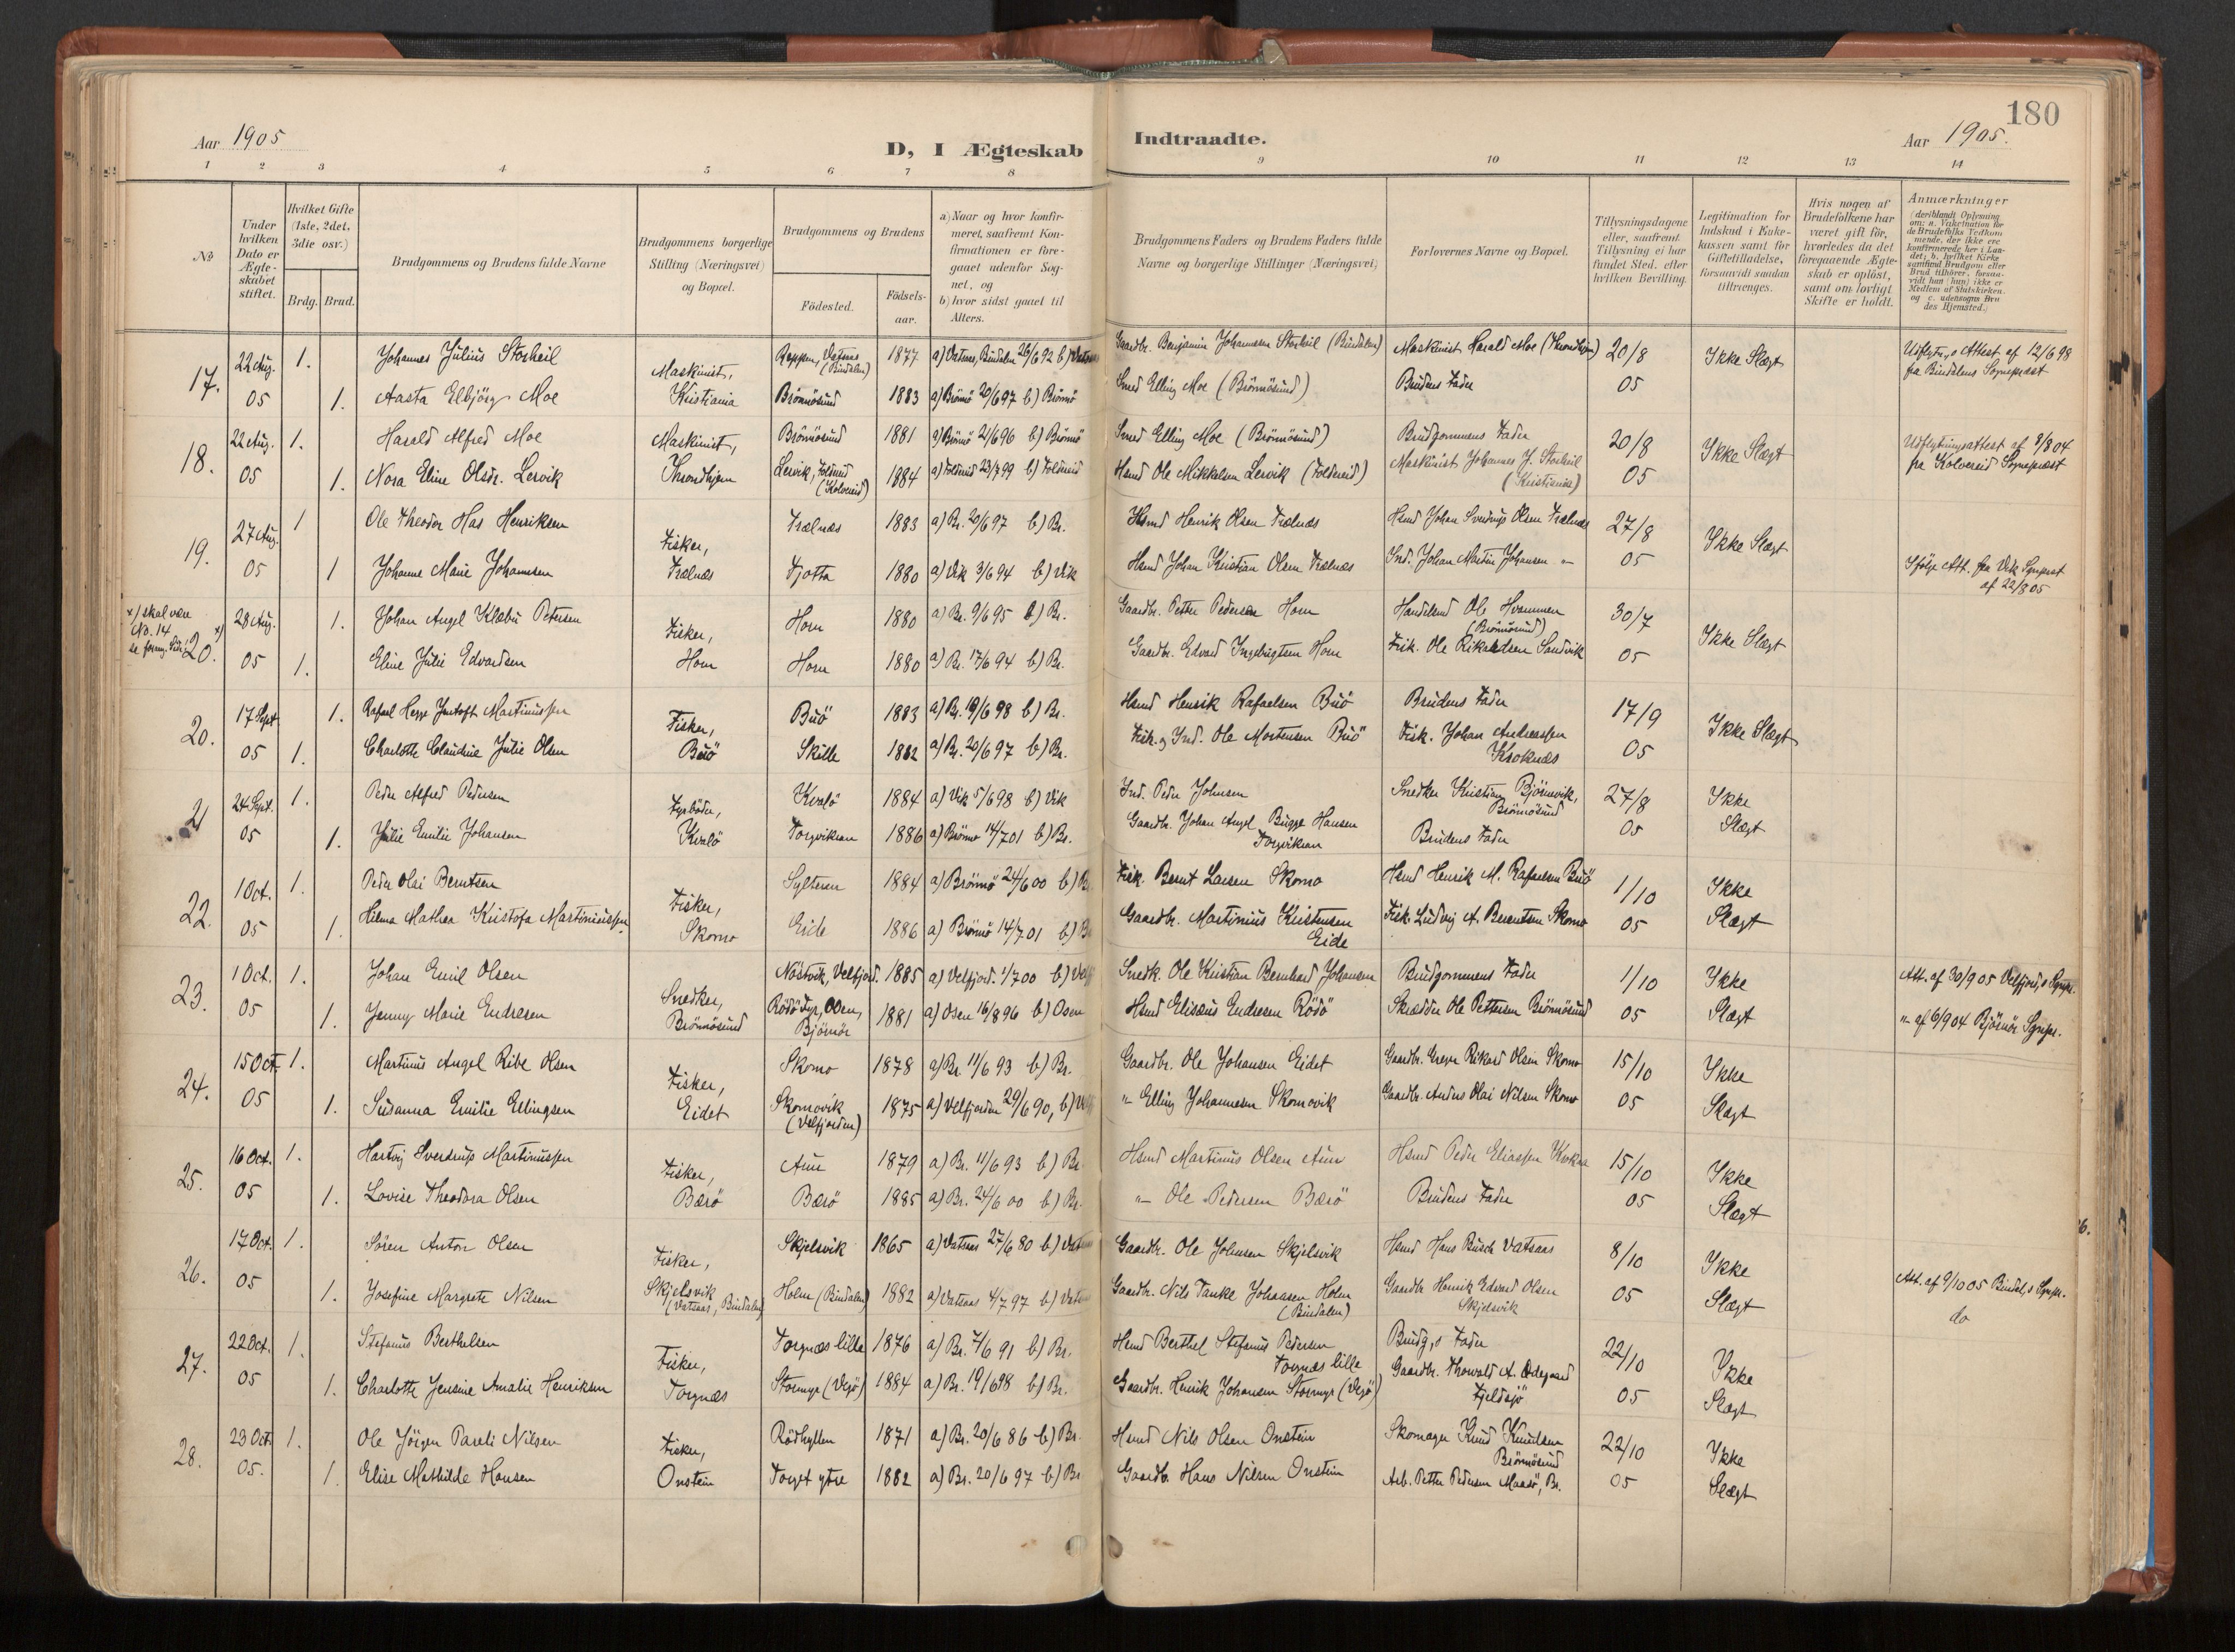 180
Aar 1905
D, I Ægteskab Indtraadte.
Aar 1905.
1 2 3 4 5 6 7 8 9 10 11 12 13 14
No
Under hvilken Dato er Ægteskabet stiftet.
Hvilket Gifte (1ste, 2det, 3die osv.)
Brdg. Brud.
Brudgommens og Brudens fulde Navne
Brudgommens borgerlige Stilling (Næringsvei) og Bopæl.
Brudgommens og Brudens
Födested. Födsels-aar.
a) Naar og hvor konfirmeret, saafremt Konfirmationen er foregaaet udenfor Sognet, og
b) hvor sidst gaaet til Alters.
Brudgommens Faders og Brudens Faders fulde Navne og borgerlige Stillinger (Næringsvei)
Forlovernes Navne og Bopæl.
Tillysningsdagene eller, saafremt Tillysning ei har fundet Sted, efter hvilken Bevilling.
Legitimation for Indskud i Enkekassen samt for Giftetilladelse, forsaavidt saadan tiltrænges.
Hvis nogen af Brudefolkene har været gift för, hvorledes da det foregaaende Ægteskab er oplöst, samt om lovligt Skifte er holdt.
Anmærkninger
(deriblandt Oplysning om: a. Vakcination for de Brudefolks Vedkommende, der ikke ere konfirmerede her i Landet; b. hvilket Kirkesamfund Brudgom eller Brud tilhörer, forsaavidt han (hun) ikke er Medlem af Statskirken, og c. udensogns Brudes Hjemsted.)
17. 22 Aug. 05 1. Johannes Julius Storheil Maskinist, Kristiania Reppen, Vatsaas (Bindalen) 1877 a) Vatsaas, Bindalen 26/6 92 b) Vatsaas Gaardbr. Benjamin Johannesen Storheil (Bindalen) Maskinist Harald Moe (Throndhjem) 20/8 05 Ikke Slægt Udflytn.s Attest af 12/6 98 fra Bindalens Sognepræst
1. Aasta Elbjörg Moe Brönnösund 1883 a) Brönnö 20/6 97 b) Brönnö Smed Elling Moe (Brönnösund) Brudens Fader
18. 22 Aug. 05 1. Harald Alfred Moe Maskinist, Throndhjem Brönnösund 1881 a) Brönnö 21/6 96 b) Brönnö Smed Elling Moe (Brönnösund) Brudgommens Fader 20/8 05 Ikke Slægt Udflytningsattest af 8/8 04 fra Kolvereid Sognepræst
1. Nora Eline Olsdr. Lervik Lervik, Foldereid (Kolvereid) 1884 a) Foldereid 23/7 99 b) Foldereid Hsmd Ole Mikkelsen Lervik (Foldereid) Maskinist Johannes J. Storheil (Kristiania)
19. 27 Aug. 05 1 Ole Theodor Has Henriksen Fisker, Trælnæs Trælnæs 1883 a) Br. 20/6 97 b) Br. Hsmd Henrik Olsen Trælnæs Hsmd Johan Sverdrup Olsen Trælnæs 27/8 05 Ikke Slægt
1 Johanne Marie Johannesen Tjotta 1880 a) Vik 3/6 94 b) Vik Hsmd Johan Kristian Olsen Trælnæs Ind. Johan Martin Johansen " Ifölge Att. fra Vik Sgnprst af 22/8 05
x) skal være No. 14 se forrig. Side
20. x) 28 Aug. 05 1. Johan Angel Klæbu Petersen Fisker, Horn Horn 1880 a) Br. 9/6 95 b) Br. Gaardbr. Petter Pedersen Horn Handelsmd Ole Hvammen (Brönnösund) 30/7 05 Ikke Slægt
1. Eline Julie Edvardsen Horn 1880 a) Br. 17/6 94 b) Br. Gaardbr. Edvard Ingebrigtsen Horn Fisk. Ole Rikardsen Sandvik
20. 17 Sept. 05 1. Rafael Hegge Jentoft Martinussen Fisker, Buö Buö 1883 a) Br. 19/6 98 b) Br. Hsmd Henrik Rafaelsen Buö Brudens Fader 17/9 05 Ikke Slægt
1. Charlotte Claudine Julie Olsen Skille 1882 a) Br. 20/6 97 b) Br. Fisk. og Ind. Ole Mortensen Buö Fisk. Johan Andreassen Kroknæs
21 24 Sept. 05 1. Peder Alfred Pedersen Fyrböder, Kvalö Kvalö 1884 a) Vik 5/6 98 b) Vik Ind. Peder Johnsen Snedker Kristian Björnevik, Brönnösund 27/8 05 Ikke Slægt
1. Julie Emilie Johansen Torgvikran 1886 a) Brönnö 14/7 01 b) Br. Gaardbr. Johan Angel Bugge Hansen Torgvikran Brudens Fader
22. 1 Oct. 05 1. Peder Olai Berntsen Fisker, Skomo Sylteren 1884 a) Brönnö 24/6 00 b) Br Fisk. Bernt Larsen Skomo Hsmd Henrik M. Rafaelsen Buö 1/10 05 Ikke Slægt
1. Hilma Mathea Kristofa Martinussen Eide 1886 a) Brönnö 14/7 01 b) Br Gaardbr. Martinius Kristensen Eide Fisk. Ludvig A. Berentsen Skomo
23. 1 Oct. 05 1. Johan Emil Olsen Snedker, Brönnösund Nöstvik, Velfjord. 1885 a) Velfjord. 1/7 00 b) Velfj Snedk. Ole Kristian Bernhard Johansen Brudgommens Fader 1/10 05 Ikke Slægt Att. af 30/9 05 Velfjord,s Sgnpr.
1. Jenny Marie Endresen Rödö Fyr, Osen, Björnör 1881 a) Osen 16/8 96 b) Osen Hsmd Elisæus Endresen Rödö Skrædder Ole Pettersen Brönnösund " af 6/9 04 Björnör Sgnpr.
24. 15 Oct. 05 1. Martinus Angel Ribe Olsen Fisker, Eidet Skomo 1878 a) Br. 11/6 93 b) Br. Gaardbr. Ole Johansen Eidet Gaardbr. Greger Rikard Olsen Skomo 15/10 05 Ikke Slægt
1. Susanna Emilie Ellingsen Skomovik (Velfjorden) 1875 a) Velfjorden 29/6 90, b) Velfj " Elling Johannesen Skomovik Gaardbr. Anders Olai Nilsen Skomo
25. 16 Oct. 05 1. Hartvig Sverdrup Martinussen Fisker, Bærö Aun 1879 a) Br. 11/6 93 b) Br. Hsmd Martinus Olsen Aun Hsmd Peder Eliassen 15/10 05 Ikke Slægt
1. Lovise Theodora Olsen Bærö 1885 a) Br. 24/6 00 b) Br. " Ole Pedersen Bærö Brudens Fader
26. 17 Oct. 05 1. Sören Anton Olsen Fisker, Skjelsvik (Vatsaas, Bindalen) Skjelsvik 1865 a) Vatsaas 27/6 80 b) Vatsaas Gaardbr. Ole Johnsen Skjelsvik Hsmd Hans Busch Vatsaas 8/10 05 Ikke Slægt Att. af 9/10 05 Bindal,s Sgnpr.
1. Josefine Margrete Nilsen Holm (Bindalen) 1882 a) Vatsaas 4/7 97 b) Vatsaas Gaardbr. Nils Tanke Johansen Holm (Bindalen) Gaardbr Henrik Edvard Olsen Skjelsvik do
27. 22 Oct. 05 1. Stefanus Berthelsen Fisker, Torgnæs Torgnæs lille 1876 a) Br. 7/6 91 b) Br. Hsmd Berthel Stefanus Pedersen Torgnæs lille Brudg,s Fader 22/10 05 Ikke Slægt
1. Charlotte Jensine Amalie Henriksen Stormyr (Vejö) 1884 a) Br. 19/6 98 b) Br. Gaardbr. Henrik Johansen Stormyr (Vejö) Gaardbr. Thorvald A. Ödegaard Fjeldsjö
28. 23 Oct. 05. 1. Ole Jörgen Pareli Nilsen Fisker, Onstein Rödhyllen 1871 a) Br. 20/6 86 b) Br. Hsmd Nils Olsen Onstein Skomager Knud Knudsen Brönnösund 22/10 05 Ikke Slægt
1. Elise Mathilde Hansen Torget ytre 1882 a) Br. 20/6 97 b) Br Gaardb. Hans Nilsen Onstein Arb. Petter Pedersen Maasö, Br.